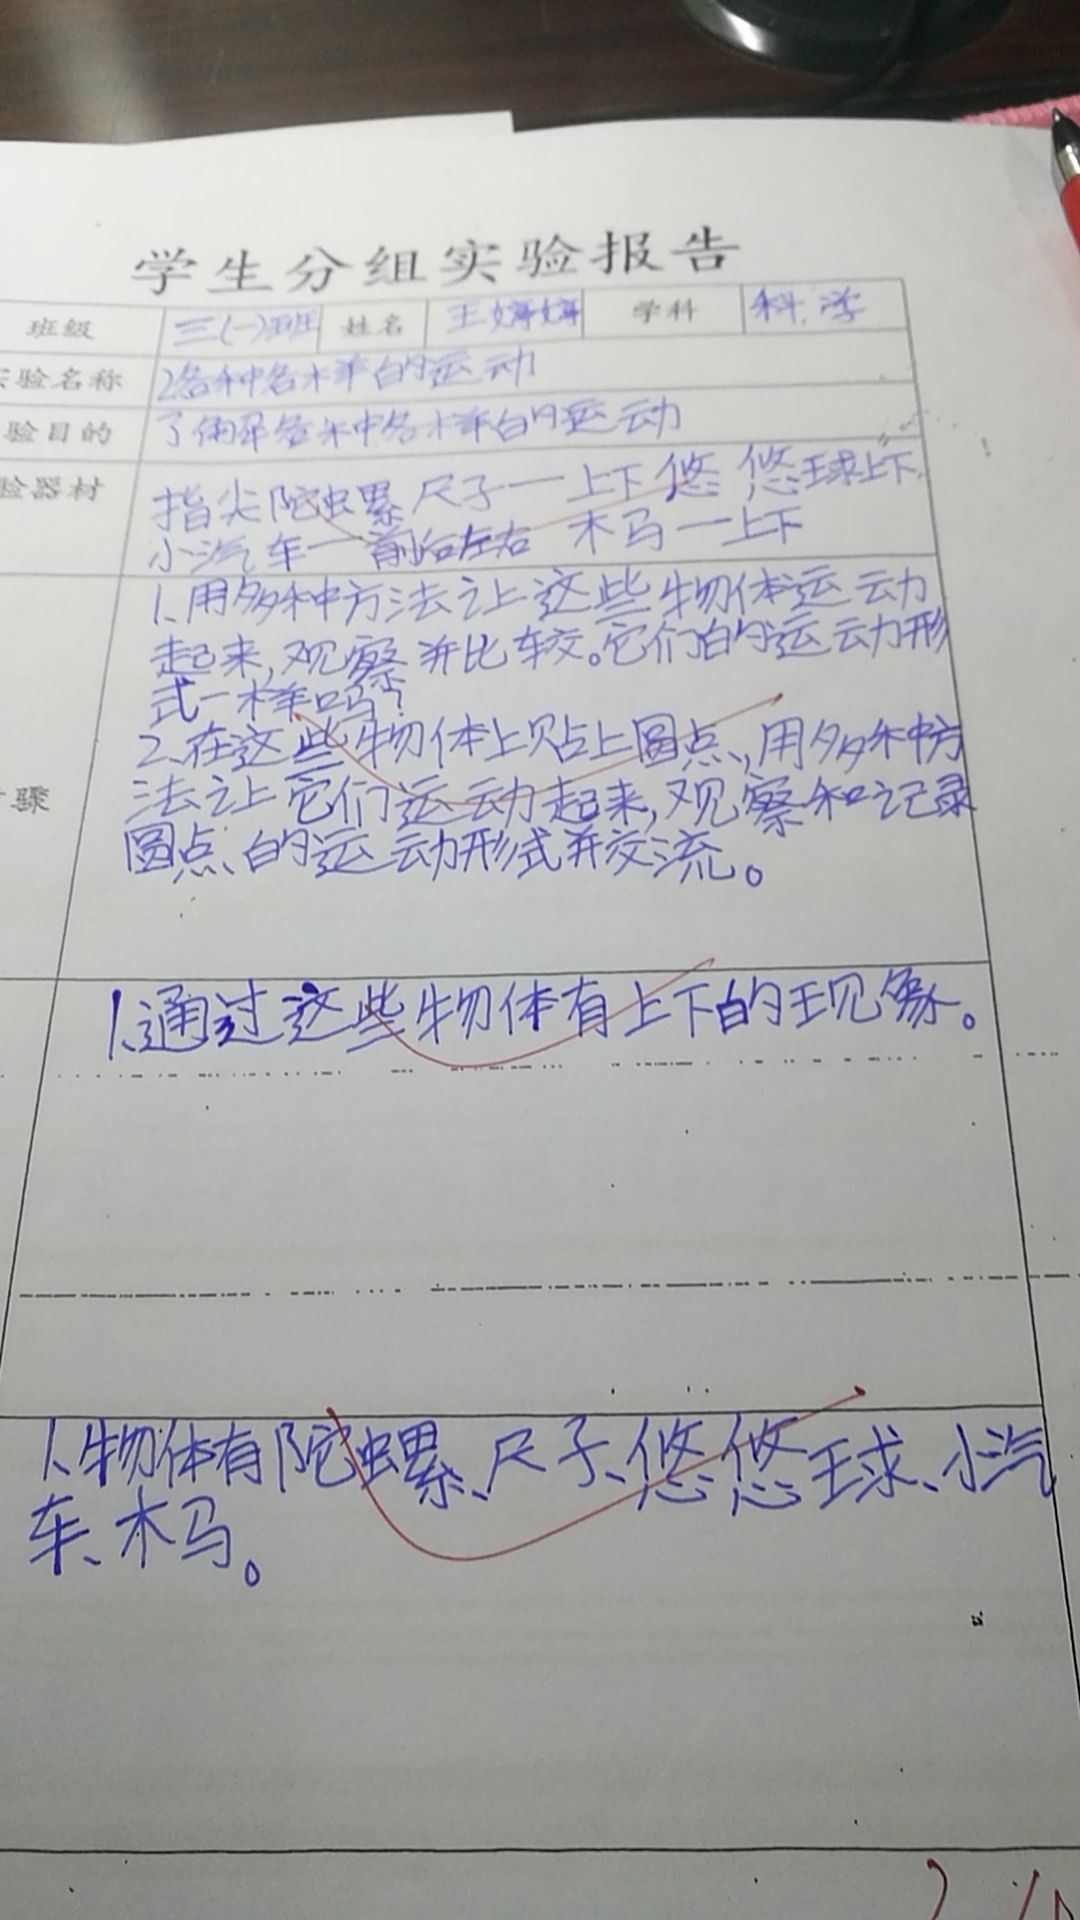 学生分组实验报告
班级 三(一)班 姓名 王婷婷 学科 科学
实验名称 2各种各样的运动
验目的 了解各种各样的运动
验器材 指尖陀螺 尺子一上下 悠悠球上下
小汽车一前后左右 木马一上下
1.用多种方法让这些物体运动
起来,观察并比较。它们的运动形
式一样吗?
2.在这些物体上贴上圆点,用多种方
骤 法让它们运动起来,观察和记录
圆点的运动形式并交流。
1.通过这些物体有上下的现象。
1.物体有陀螺、尺子、悠悠球、小汽
车、木马。